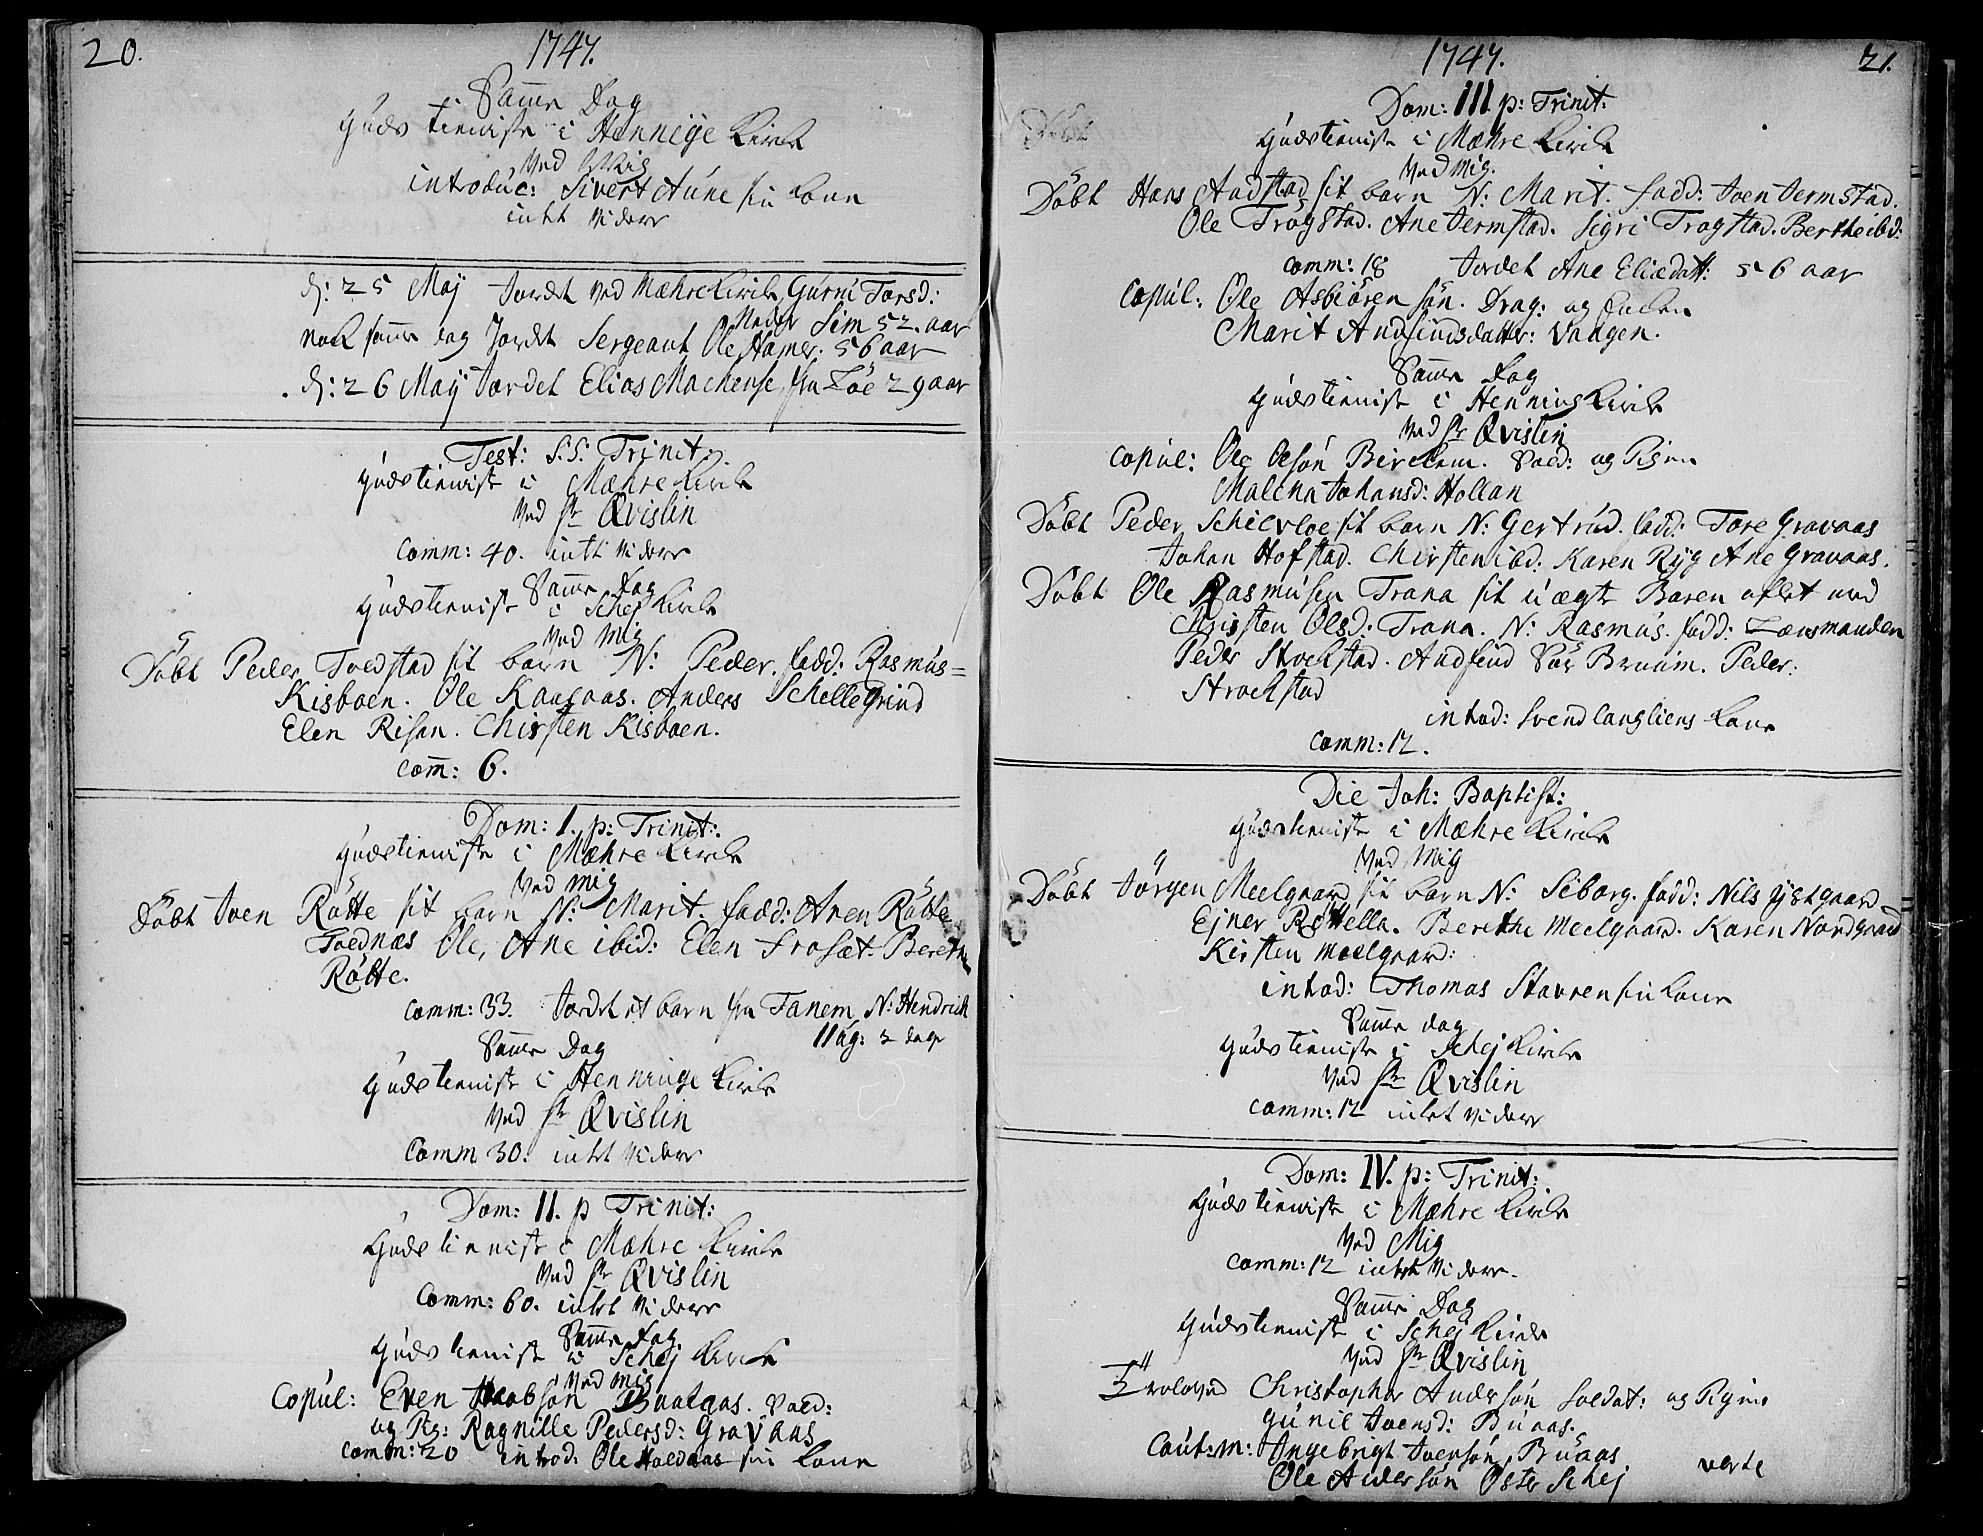 20.
1747.
Samme Dag
Gudstieniste i Henninge Kirke
Ved Mig
introduc: Sivert Aune sin Kone
intet videre
d: 25 Maj Jordet ved Mæhre Kirke, Guruj Torsd:
Neder Sem 52. aar
nok samme dag Jordet Sergeant Ole Hamer. 56 aar
d: 26 Maij Jordet Elias Machense fra Löe 29 aar
Fest: S.S. Trinit:
Gudstieniste i Mæhre Kirke
Ved Hr Qvislin
Comm: 40. intet videre
Samme Dag
Gudstieniste i Schej Kirke
Ved Mig
Döbt Peder Tvedstad sit barn N: Peder. fadd: Rasmus=
Kisboen. Ole Kaaraas. Anders Schellegrind
Elen Risan. Chirsten Kisboen.
com: 6.
Dom: I. p: Trinit:
Gudstieniste i Mæhre Kirke
Ved mig
Döbt Iven Rötte sit barn N: Marit. fadd: Aren Rötte
Tvednæs Ole, Ane ibid: Elen Frosæt. Berethe
Rötte.
Comm: 33. Jordet et barn fra Tanem N: Hendrich
11 ug: 3 dage
Samme Dag
Gudstieniste i Henninge Kirke
Ved Hr Qvislin
Comm 30. intet videre
Dom: II. p Trinit:
Gudstieniste i Mæhre Kirke
Ved Hr Qvislin
Comm: 60. intet videre
Samme Dag
Gudstieniste i Schej Kirke
Ved mig
Copul: Even Jacobsön Buaas. Sold:
og Pig: Ragnille Pedersd: Gravaas
comm: 20 introd. Ole Hoedaas sin Kone
1747.
21.
Dom: III p: Trinit:
Döbt
Gudstieniste i Mæhre Kirke
Ved mig.
Döbt Hans Audstad sit barn N: Marit. fadd: Iven Jermstad.
Ole Trogstad. Ane Jermstad. Sigri Trogstad. Berthe ibd:
Comm: 18 Jordet Ane Eliædatt: 56 aar
Copul: Ole Asbiören sön. Drag: og Enken
Marit Andfindsdatter: Vaagen.
Samme Dag
Gudstieniste i Henning Kirke
Ved Hr Qvislin
Copul: Ole Olsön Birclem. Sold: og Pigen
Malena Johansd: Hollan
Döbt Peder Schievloe sit barn N: Gertrud. fadd: Tore Gravaas
Johan Hofstad. Chirsten ibd: Karen Ryg Ane Gravaas.
Döbt Ole Rasmusen Trana sit uægte Baren aflet med
Christen Olsd: Trana. N: Rasmus. fadd: Lænsmanden
Peder Stochstad. Andfind Sör Bruum. Peder:
Strochstad
intod: Svend Langliens Kone
Comm: 12.
Die Joh: Baptist:
Gudstieniste i Mæhre Kirke
Ved Mig
Döbt Jörgen Meelgaard sit barn N: Siborg. fadd: Nils Ystgaard
Ejner Röskella. Berethe Meelgaard. Karen Nordgaard
Kirsten Meelgaard:
intod: Thomas Stavren sin Kone
Samme dag
Gudstieniste i Schej Kirke
Ved Hr Qvislin
Comm: 12 intet videre
Dom: IV. p: Trinit:
Gudstieniste i Mæhre Kirke
Ved Mig
Comm: 12 intet videre.
Samme Dag
Gudstieniste i Schej Kirke
Ved Hr Qvislin
Troloved Christopher Andersön Soldat: og Pigen
Gunil Ivensd: Buaas.
Caut: m: Ingebrigt Ivensön, Buaas
Ole Andersön Öster Schej
verte